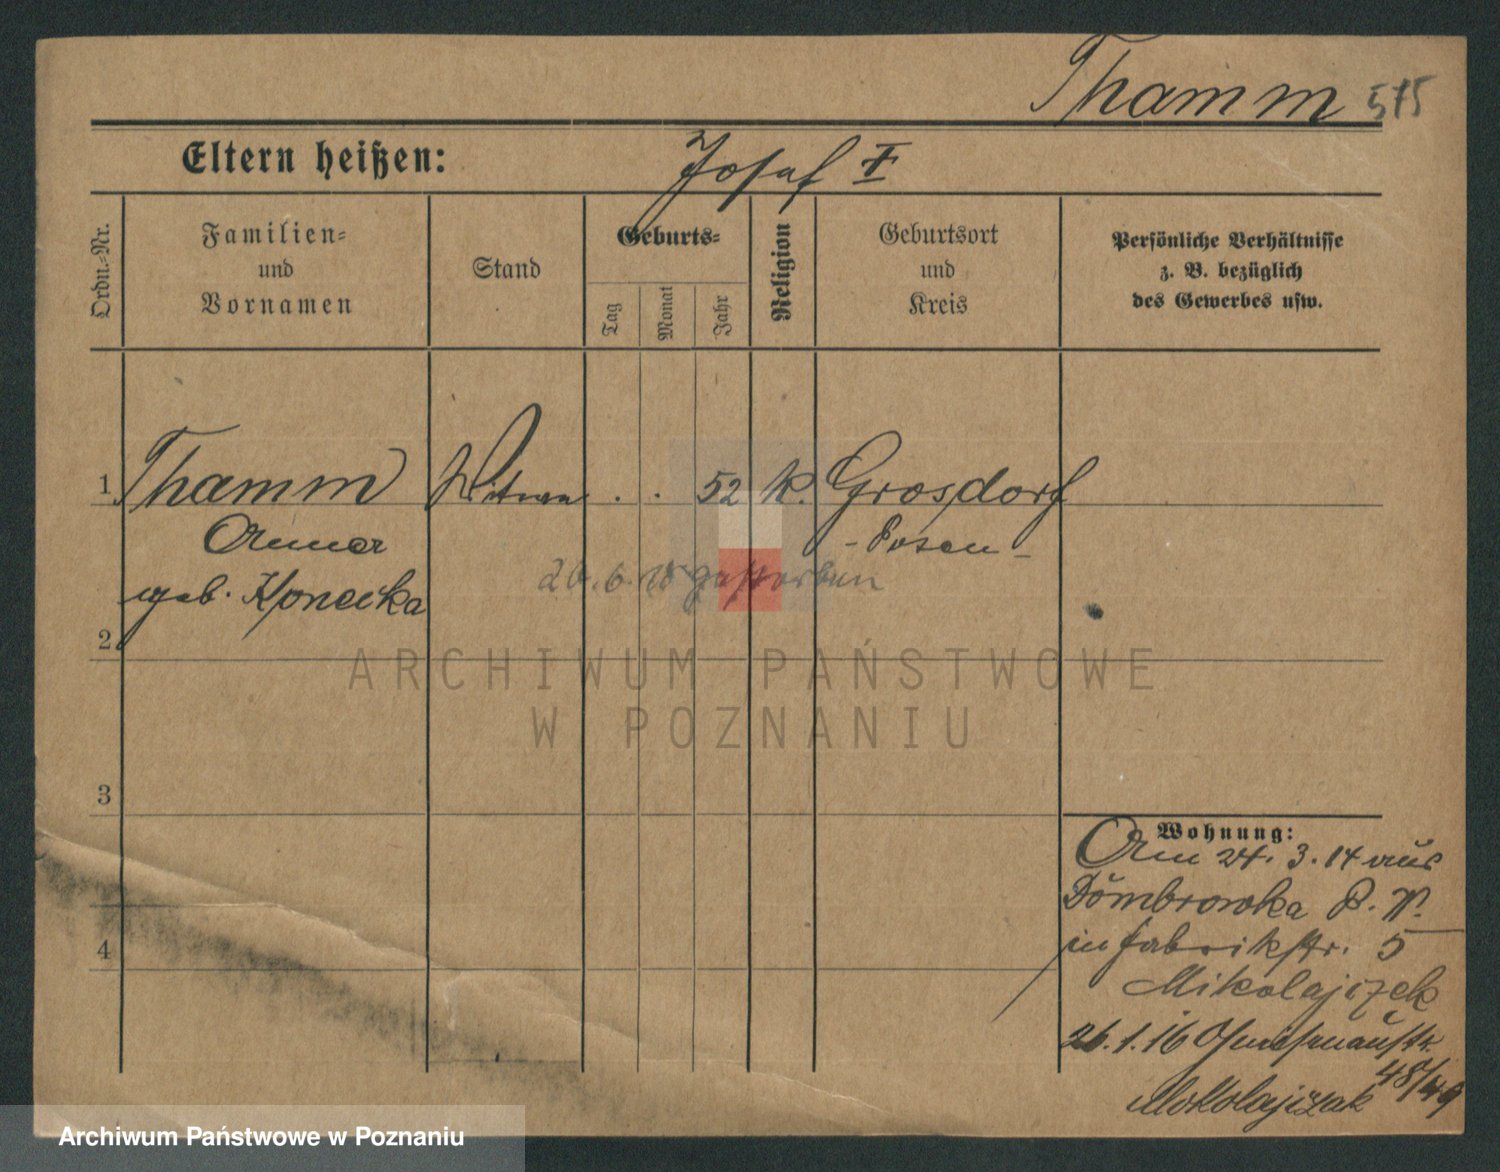 Thamm 575
Eltern heißen: Josef I
Ordn.-Nr.
Familien-
und
Vornamen
Stand
Geburts-
Tag
Monat
Jahr
Religion
Geburtsort
und
Kreis
Persönliche Verhältnisse
z. B. bezüglich
des Gewerbes usw.
1 Thamm Witwe . . 52 k. Grosdorf
Anna - Posen -
geb. Konecka
26. 6. gestorben
2
ARCHIWUM PAŃSTWOWE
W POZNANIU
3
Wohnung:
Am 24. 3. 14 aus
Dombrowka P. W.
in Fabrikstr. 5
4
Mikolajczek
26. 1. 16
48/49
Mikolajczak
Archiwum Państwowe w Poznaniu